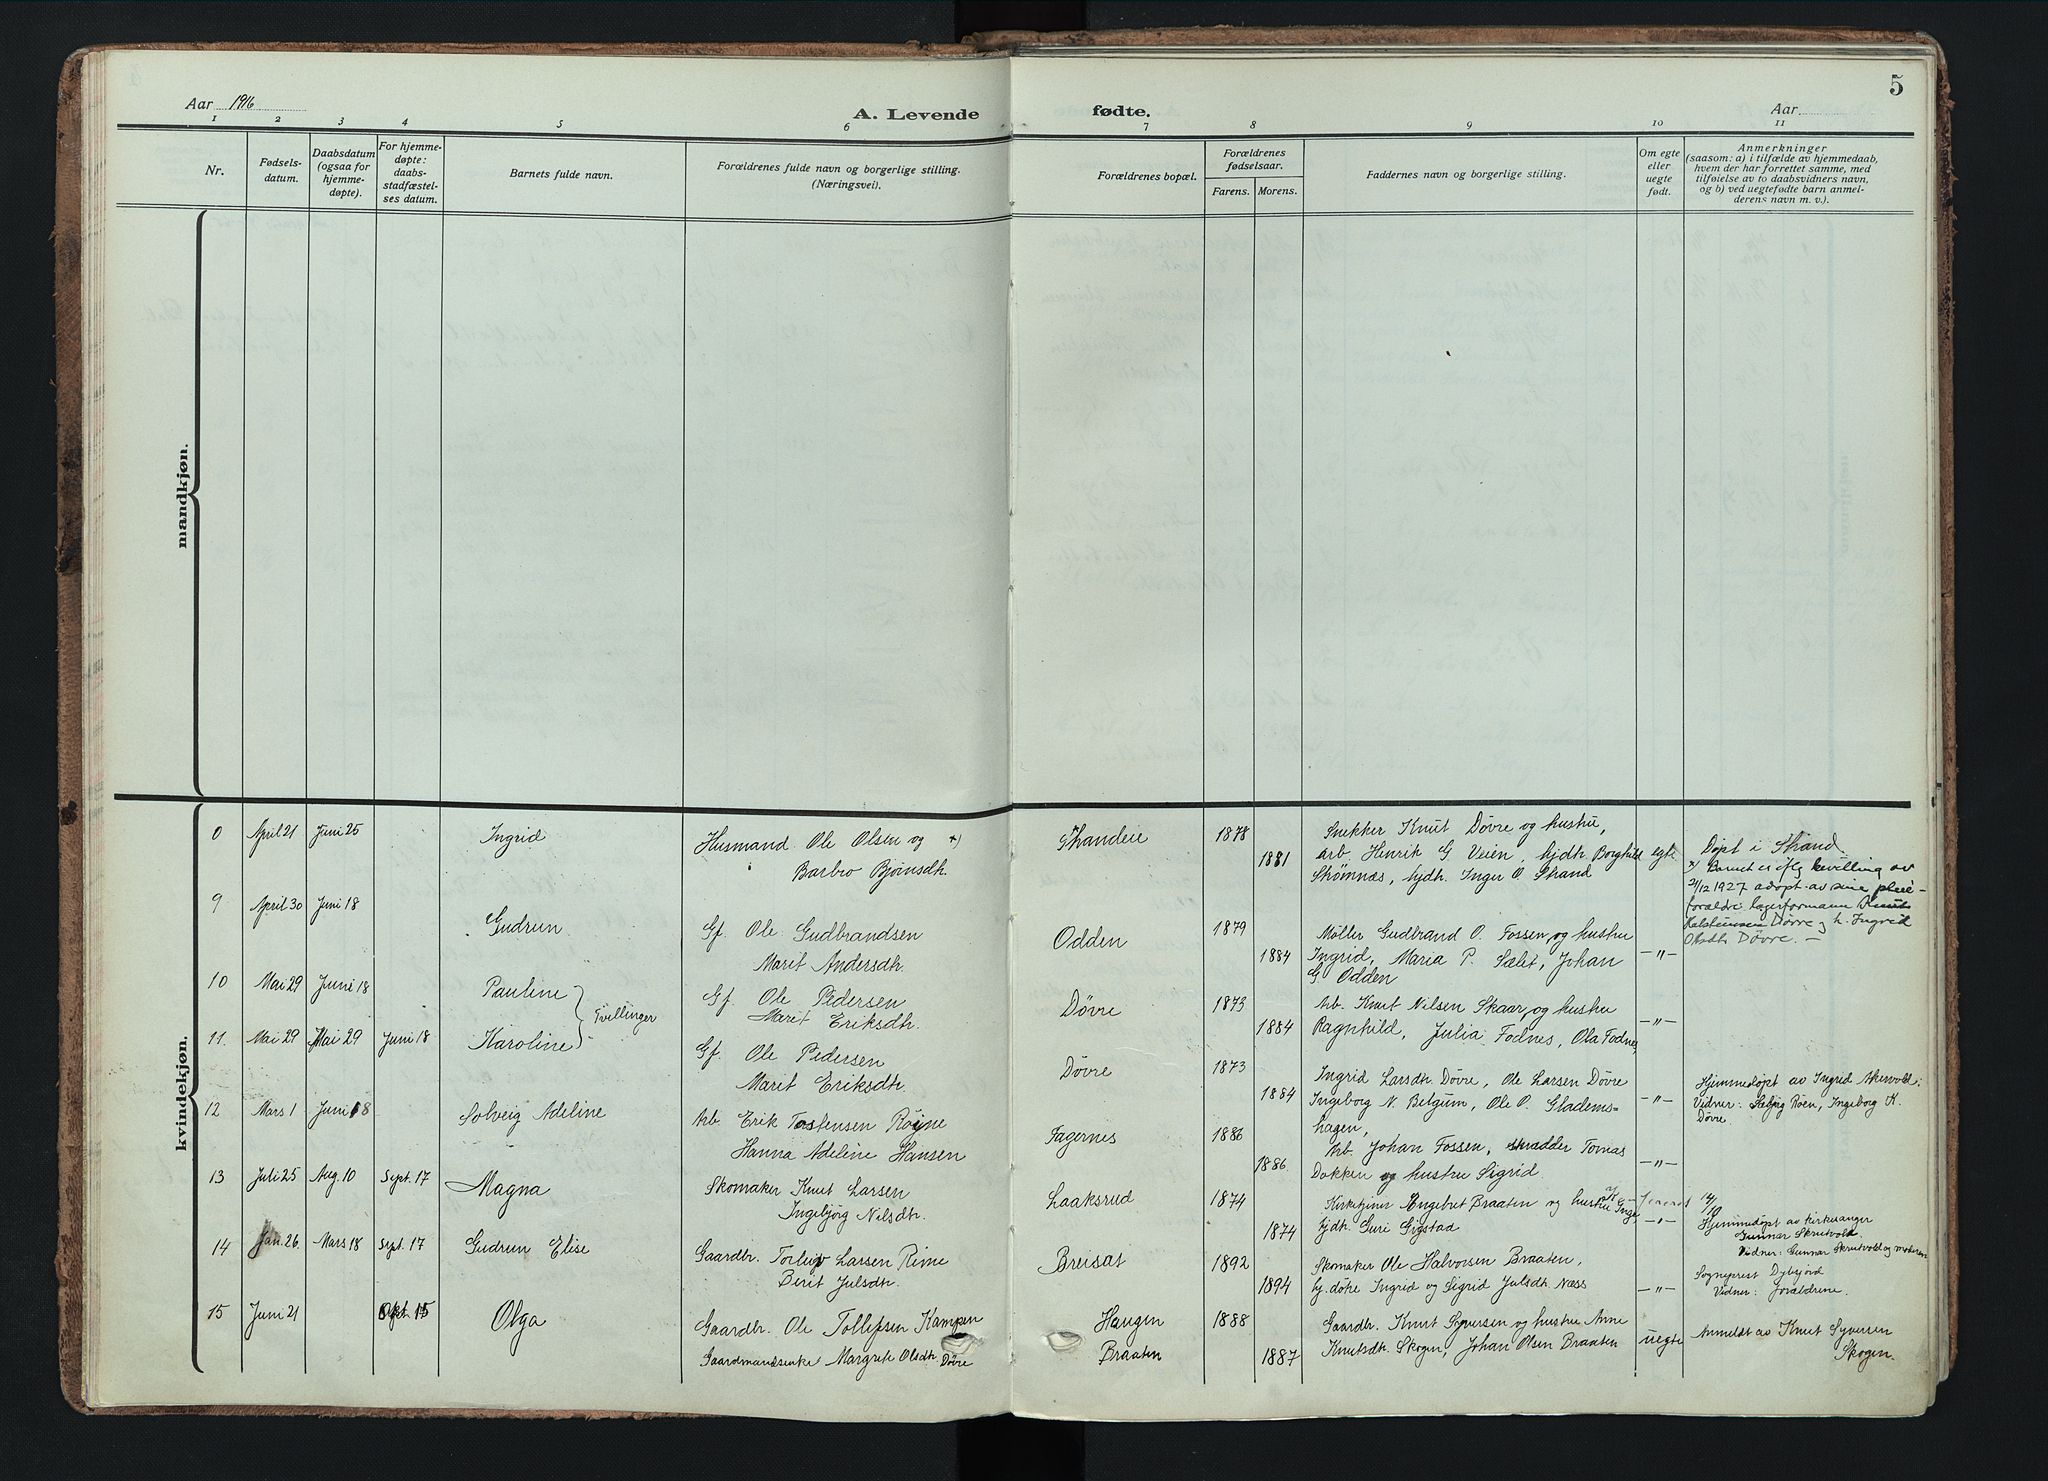 5
Aar 1916
A. Levende
fødte.
Aar
1 2 3 4 5 6 7 8 9 10 11
Nr.
Fødsels-
datum.
Daabsdatum
(ogsaa for
hjemme-
døpte).
For hjemme-
døpte:
daabs-
stadfæstel-
ses datum.
Barnets fulde navn.
Forældrenes fulde navn og borgerlige stilling.
(Næringsvei).
Forældrenes bopæl.
Forældrenes
fødselsaar.
Farens. Morens.
Faddernes navn og borgerlige stilling.
Om egte
eller
uegte
født.
Anmerkninger
(saasom: a) i tilfælde av hjemmedaab,
hvem der har forrettet samme, med
tilføielse av to daabsvidners navn,
og b) ved uegtefødte barn anmel-
derens navn m. v.).
mandkjøn.
kvindekjøn.
April 21 Juni 25
Ingrid
Husmand Ole Olsen og x)
Barbro Bjørnsdh.
1878
1881
Snekker Knut Døvre og hustru,
Arb. Henrik G. Veien, Gjdh. Borghild
Strømnæs, Gjdh. Inger O. Strand
egte
Døpt i Strand.
x) Barnet er iflg bevilling av
21/12 1927 adopt. av sine pleie-
forældre lagerformann Knut
Halsteinsen Døvre og h. Ingrid
Olsdh Døvre. —
9 April 30 Juni 18
Gudrun
Gf. Ole Gudbrandsen
Marit Andersdh.
Odden
1879
1884
Møller Gudbrand O. Fossen og hustru
Ingrid, Maria P. Sælet, Johan
G. Odden
—"—
10 Mai 29 Juni 18
Pauline
Tvillinger
Gf. Ole Pedersen
Marit Eriksdh.
Døvre
1873
1884
Arb. Knut Nilsen Skaar og hustru
Ragnhild, Julia Fodnes, Ola Fodnes
—"—
11. Mai 29 Mai 29 Juni 18
Karoline
Gf. Ole Pedersen
Marit Eriksdh.
Døvre
1873
1884
Ingrid Larsdh. Døvre, Ole Larsen Døvre
Ingeborg N. Belgum, Ole O. Gladems-
hagen,
—"—
Hjemmedøpt av Ingrid Akervold.
Vidner: Solveig Roen, Ingeborg K.
Døvre.
12 Mars 1 Juni 18
Solveig Adeline
Arb. Erik Tostensen Røine
Hanna Adeline Hansen
Fagernes
1886
1886.
Arb. Johan Fossen, skrædder Tomas
Dokken og hustru Sigrid.
—"—
13 Juli 25 Aug. 10 Sept. 17
Magna
Skomaker Knut Larsen
Ingebjørg Nilsdh.
Laaksrud
1874
1874
Kirketjener Engebret Braaten og hustru Inge
Gjdh. Guri Sigstad
—"—
Hjemmedøpt av kirkesanger
Gunnar Skrutvold
Vidner: Gunnar Skrutvold og moderen
14 Jan. 26. Mars 18 Sept. 17
Gudrun Elise
Gaardbr. Torleiv Larsen Rime
Berit Julsdh.
Breisat
1892
1894
Skomaker Ole Halvorsen Braaten,
Gj.døtre Ingrid og Sigrid Julsdh. Næss
—"—
Sogneprest Dybsjord
Vidner: Forældrene.
15 Juni 21 Okt. 15
Olga
Gaardbr. Ole Tollefsen Kampen
Gaardmandsenke Margrete Olsdh. Døvre
Haugen
Braaten
1888
1887
Gaardbr. Knut Syversen og hustru Anne
Knutsdh. Skogen, Johan Olsen Braaten
uegte
Anmeldt av Knut Syversen
Skogen.